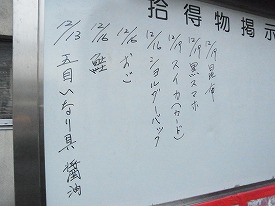 拾得物掲示
12/9 昆布
12/9 黒スマホ
12/9 スイカ(カード)
12/16 ショルダーバック
12/16
12/16 鮭
12/13 五目いなり具 醤油